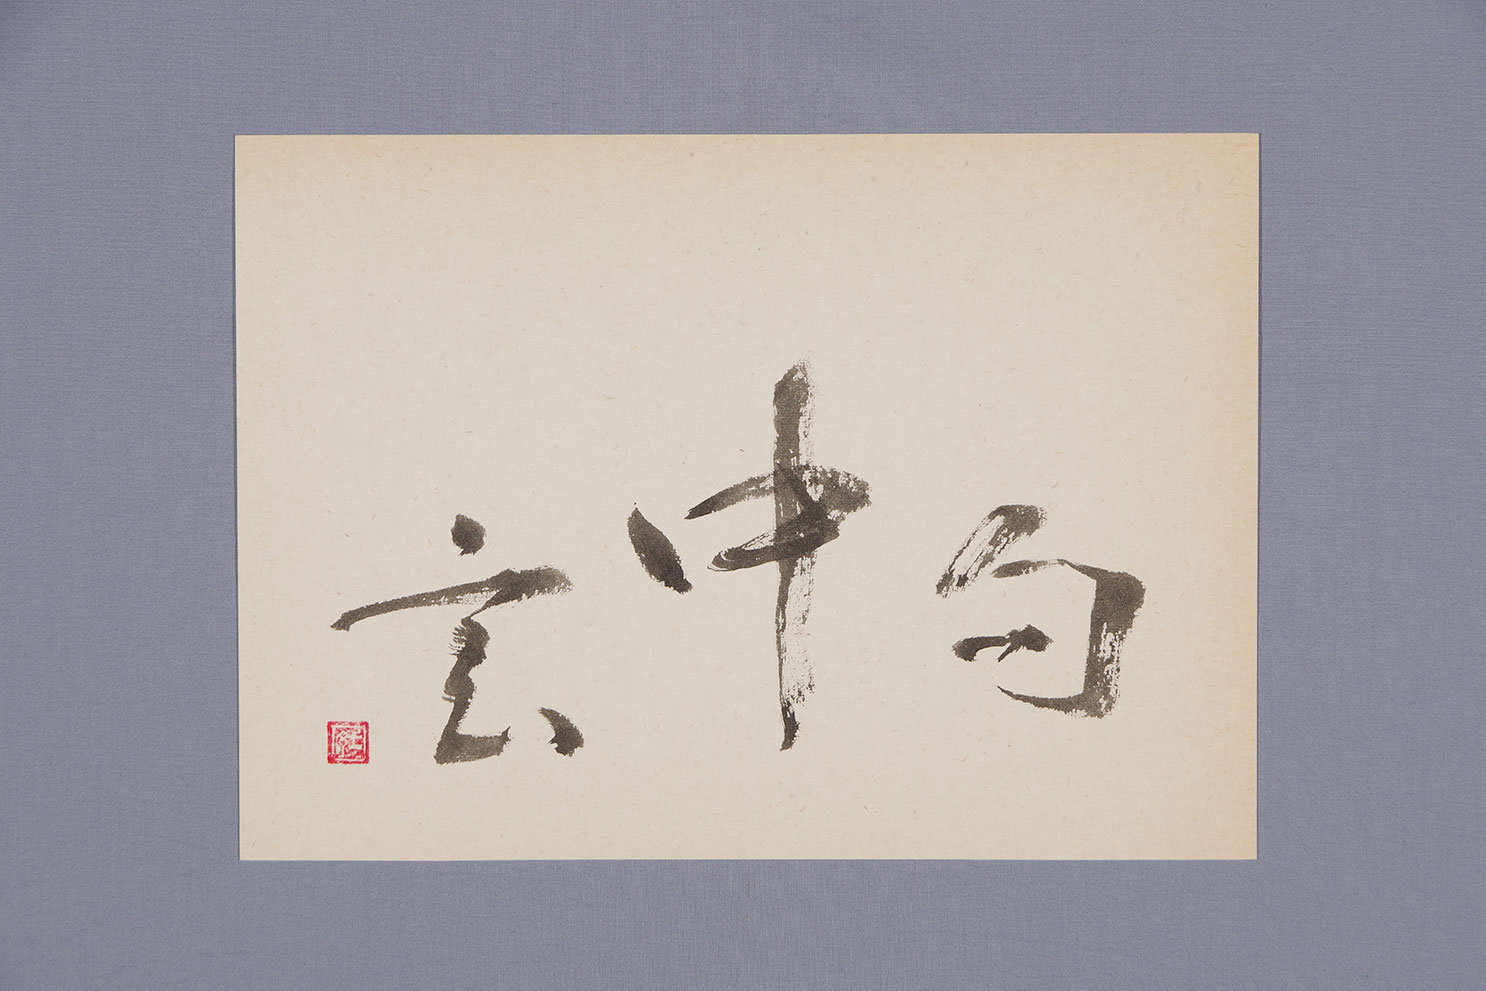 句中玄